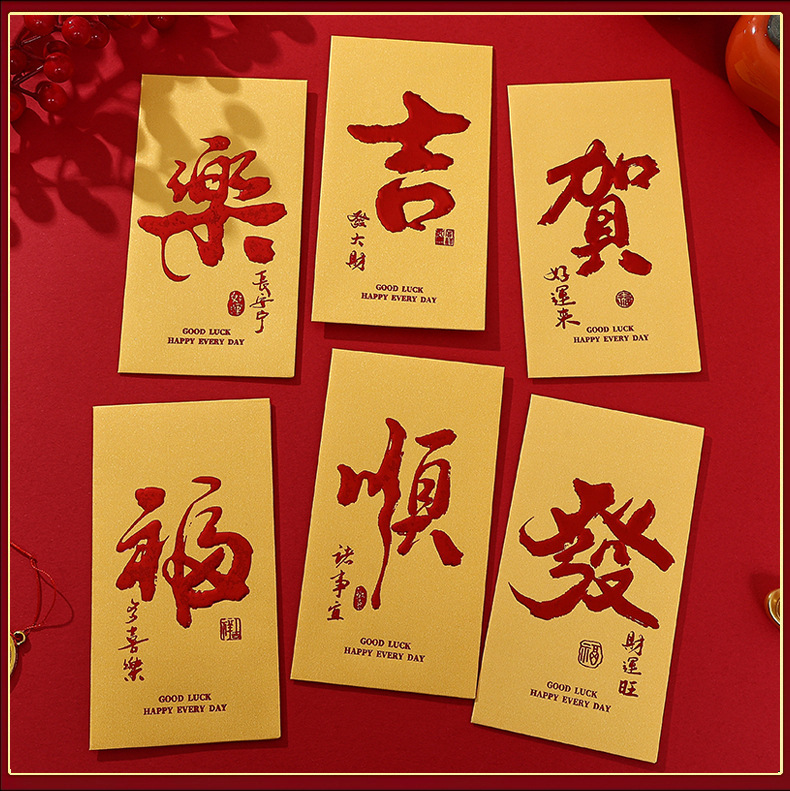 樂
長安寧
GOOD LUCK
HAPPY EVERY DAY
吉
發大財
GOOD LUCK
HAPPY EVERY DAY
賀
好運来
GOOD LUCK
HAPPY EVERY DAY
福
喜樂
GOOD LUCK
HAPPY EVERY DAY
順
諸事宜
GOOD LUCK
HAPPY EVERY DAY
發
財運旺
福
GOOD LUCK
HAPPY EVERY DAY